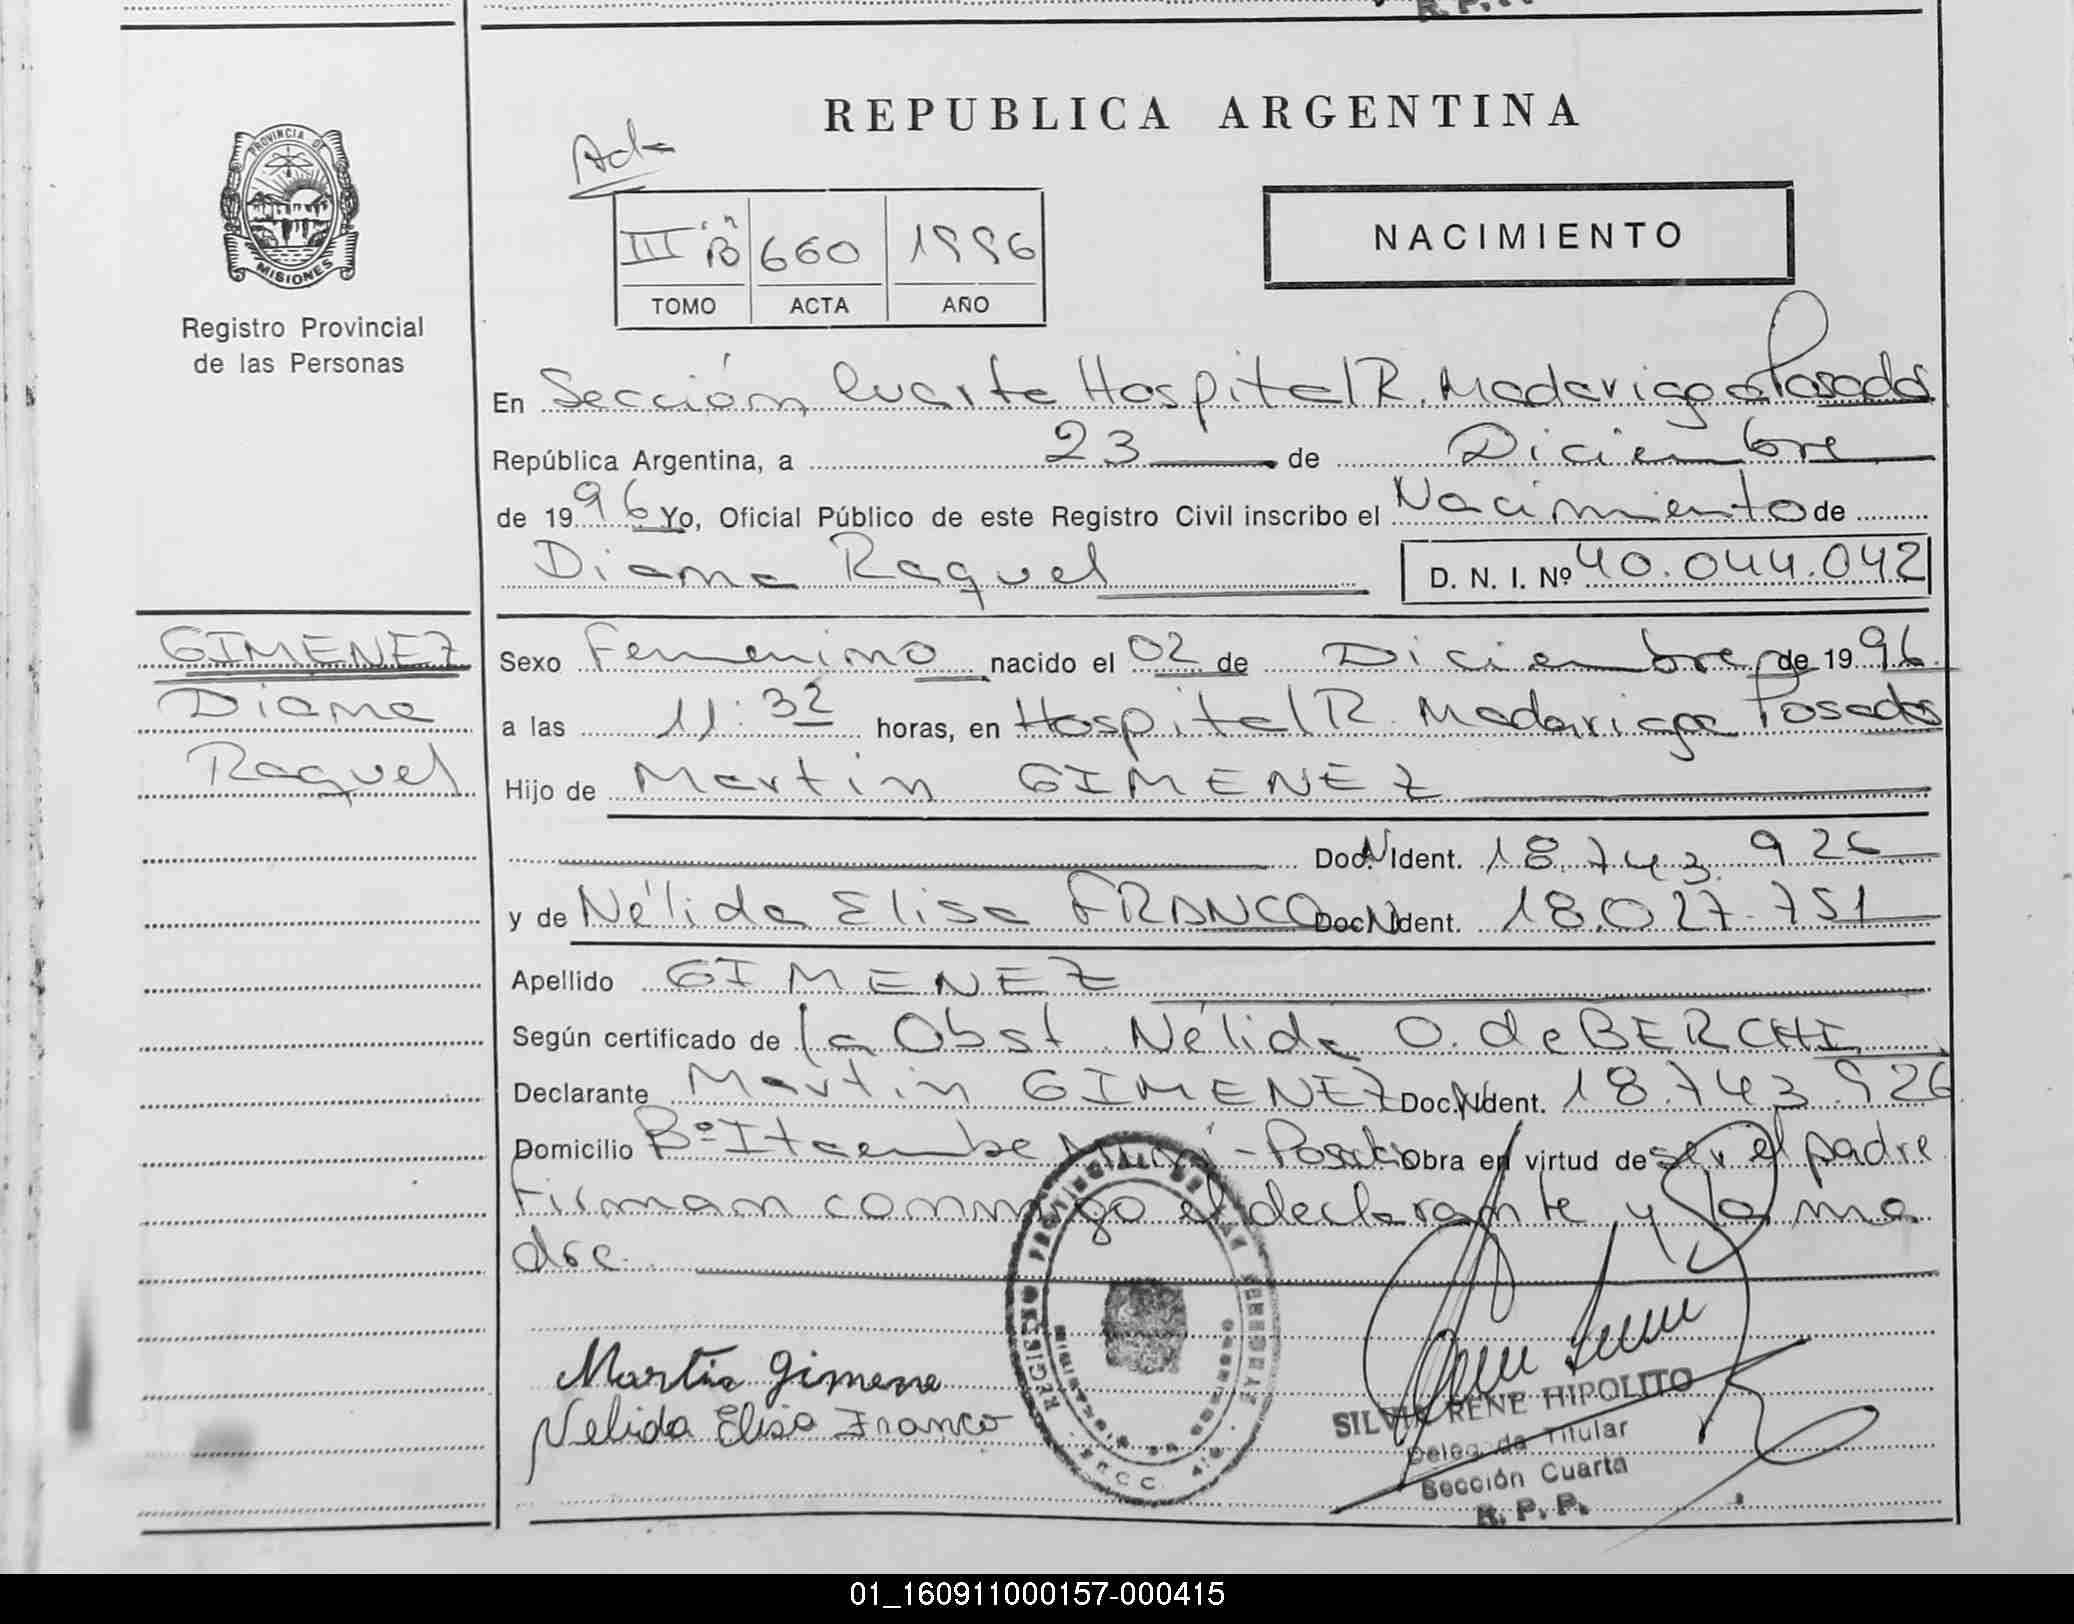 R. P. P.
REPUBLICA ARGENTINA
Acta
PROVINCIA DE
MISIONES
III "B" 660 1996
TOMO ACTA AÑO
NACIMIENTO
Registro Provincial
de las Personas
En Sección Cuarta Hospital R. Madariaga Posadas
República Argentina, a 23 de Diciembre
de 1996 Yo, Oficial Público de este Registro Civil inscribo el Nacimiento de
Diana Raquel D. N. I. Nº 40.044.042
GIMENEZ
Diana
Raquel
Sexo Femenino nacido el 02 de Diciembre de 1996
a las 11:32 horas, en Hospital R. Madariaga Posadas
Hijo de Martin GIMENEZ
Doc. N Ident. 18.743.926
y de Nélida Elisa FRANCO Doc. N Ident. 18.027.751
Apellido GIMENEZ
Según certificado de la Obst. Nélida O. de BERCHI
Declarante Martin GIMENEZ Doc. N Ident. 18.743.926
Domicilio Bº Itaembe Miní - Posadas Obra en virtud de ser el padre
Firman conmigo el declarante y la ma
dre.
Martin Gimene
Nelida Elisa Franco
SILVIA RENE HIPOLITO
Delegada Titular
Sección Cuarta
R. P. P.
01_160911000157-000415